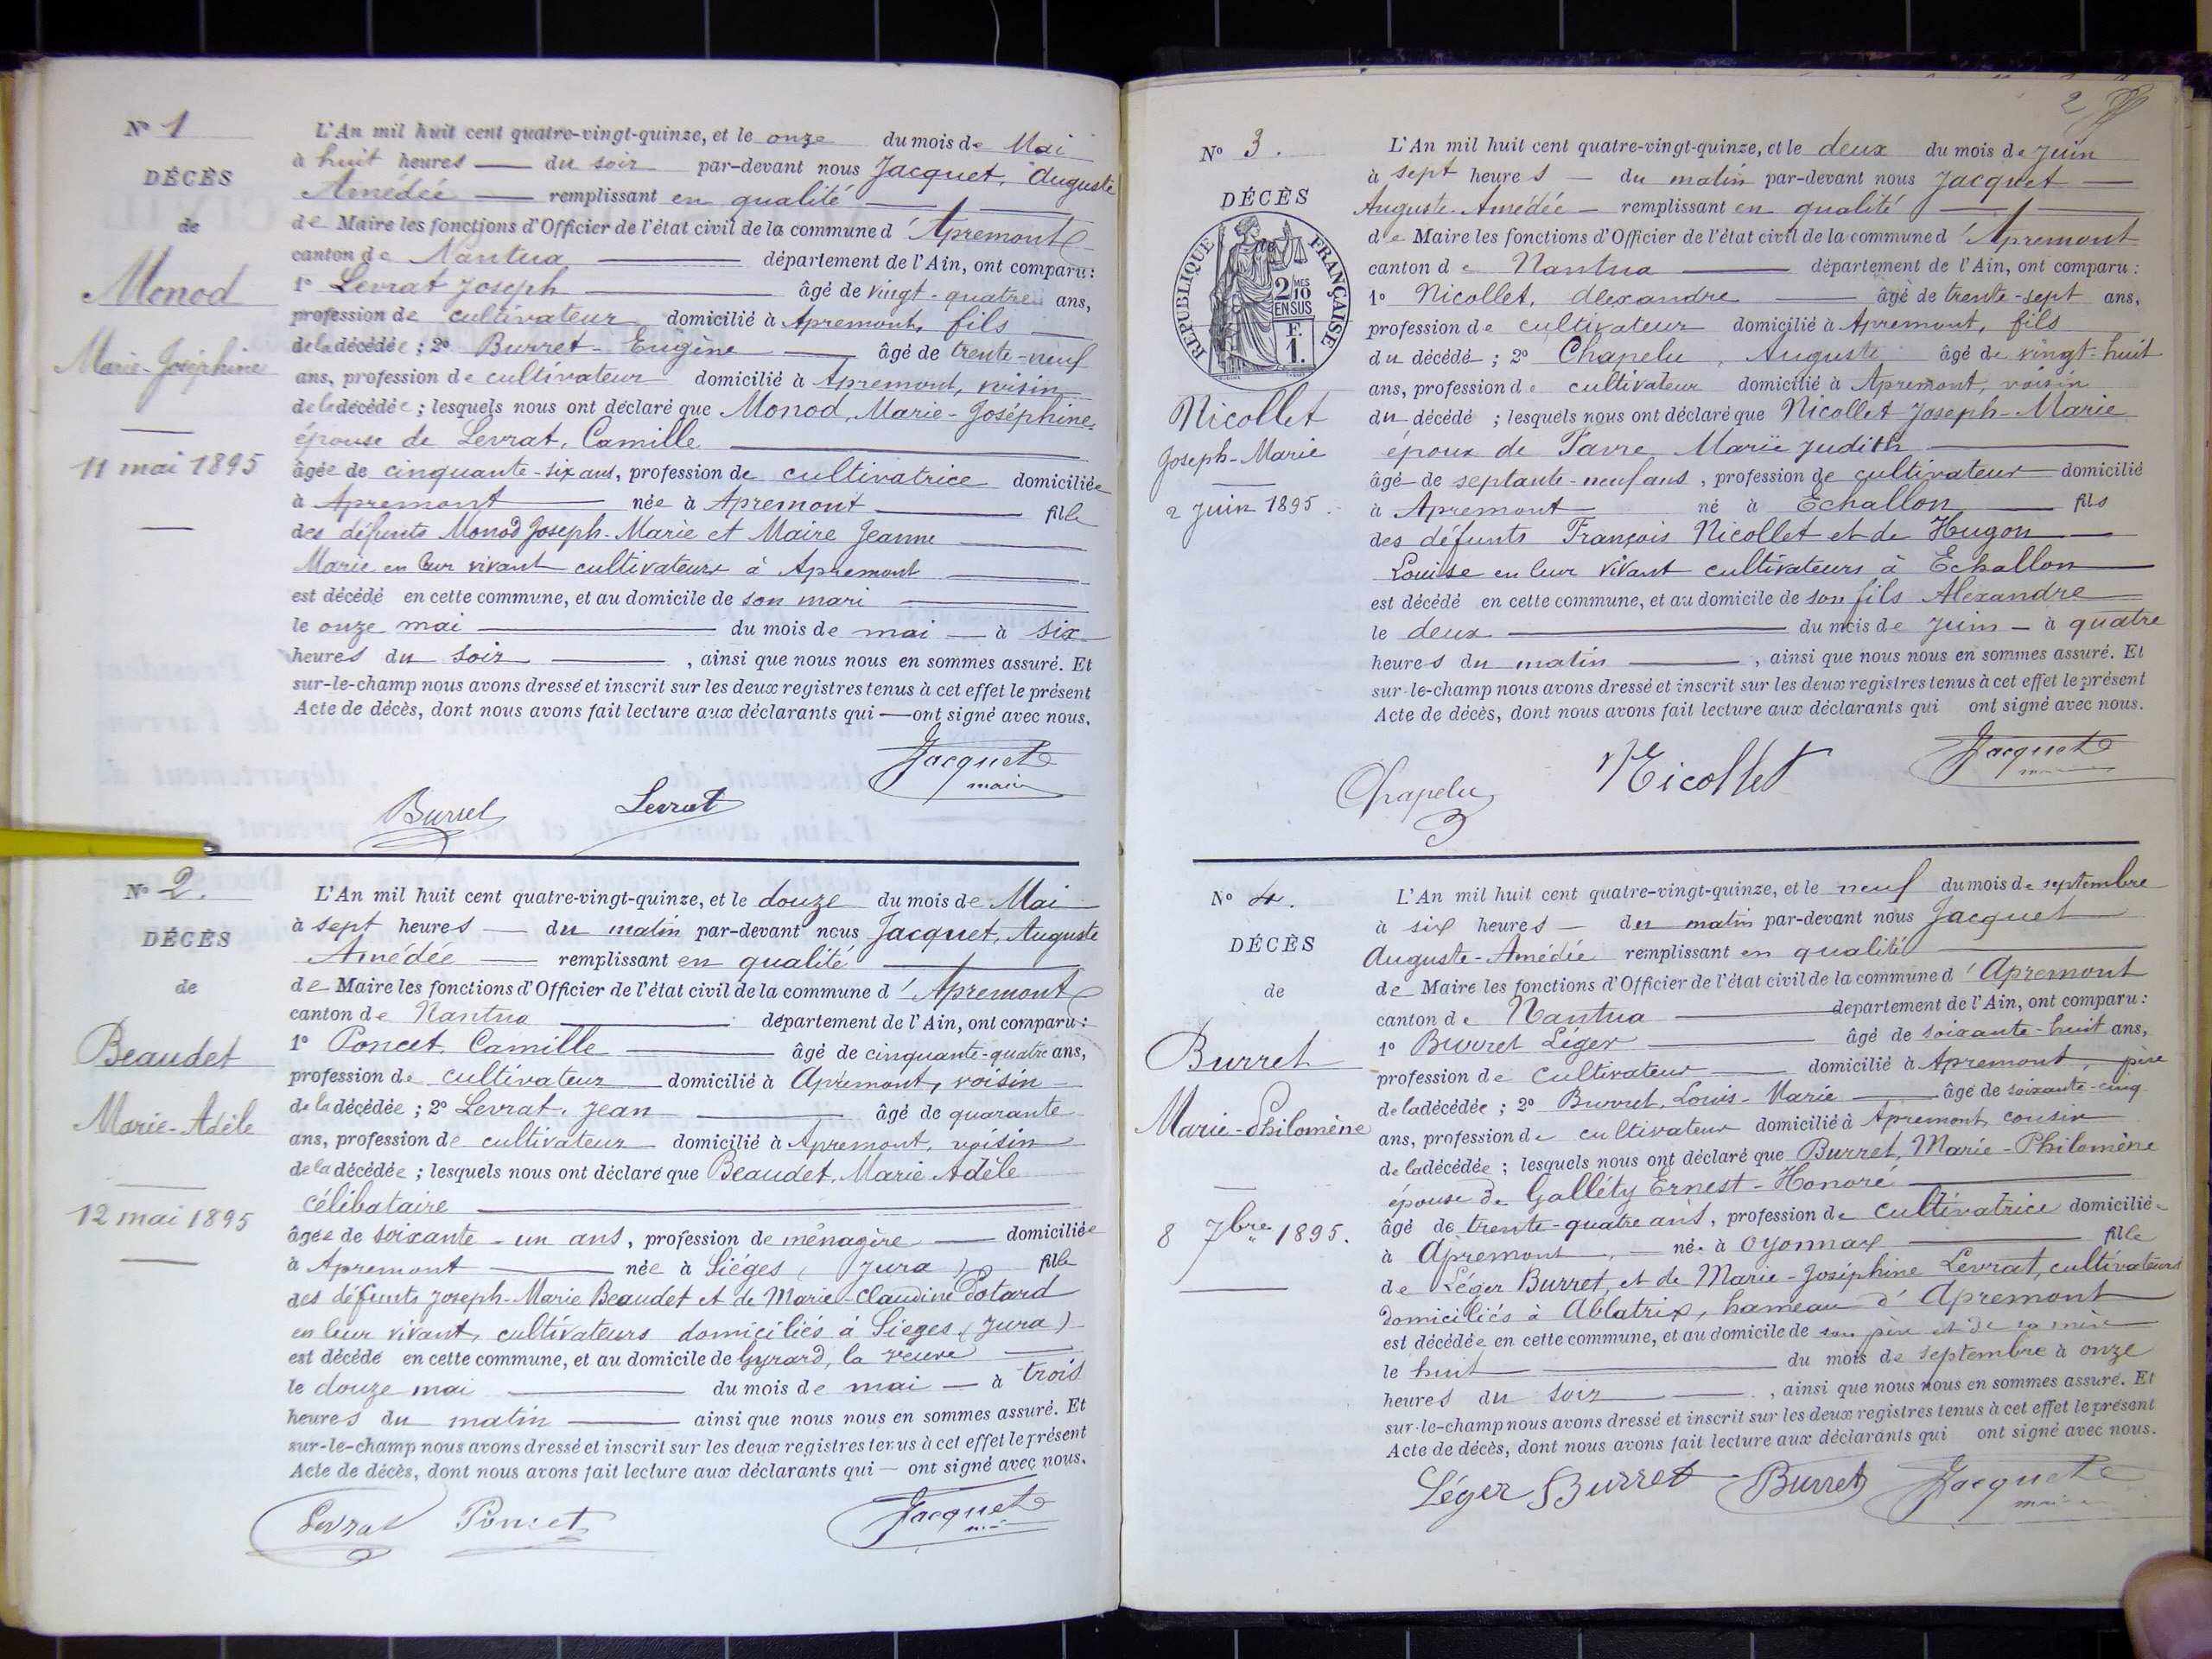 N° 1
DÉCÈS
de
Monod
Marie-Joséphine
11 mai 1895
L'An mil huit cent quatre-vingt-quinze, et le onze du mois de Mai
à huit heures du soir par-devant nous Jacquet, Auguste
Amédée remplissant en qualité
de Maire les fonctions d'Officier de l'état civil de la commune d'Apremont
canton de Nantua département de l'Ain, ont comparu :
1° Levrat Joseph âgé de vingt-quatre ans,
profession de cultivateur domicilié à Apremont, fils
de la décédée ; 2° Burret Eugène âgé de trente-neuf
ans, profession de cultivateur domicilié à Apremont, voisin
de la décédée ; lesquels nous ont déclaré que Monod, Marie-Joséphine,
épouse de Levrat, Camille
âgée de cinquante-six ans, profession de cultivatrice domiciliée
à Apremont née à Apremont fille
des défunts Monod Joseph-Marie et Maire Jeanne
Marie en leur vivant cultivateurs à Apremont
est décédé en cette commune, et au domicile de son mari
le onze mai du mois de mai à six
heures du soir , ainsi que nous nous en sommes assuré. Et
sur-le-champ nous avons dressé et inscrit sur les deux registres tenus à cet effet le présent
Acte de décès, dont nous avons fait lecture aux déclarants qui ont signé avec nous.
Jacquet
maire
Burret Levrat
N° 2.
DÉCÈS
de
Beaudet
Marie-Adèle
12 mai 1895
L'An mil huit cent quatre-vingt-quinze, et le douze du mois de Mai
à sept heures du matin par-devant nous Jacquet, Auguste
Amédée remplissant en qualité
de Maire les fonctions d'Officier de l'état civil de la commune d'Apremont
canton de Nantua département de l'Ain, ont comparu :
1° Poncet, Camille âgé de cinquante-quatre ans,
profession de cultivateur domicilié à Apremont, voisin
de la décédée ; 2° Levrat, Jean âgé de quarante
ans, profession de cultivateur domicilié à Apremont, voisin
de la décédée ; lesquels nous ont déclaré que Beaudet, Marie Adèle
célibataire
âgée de soixante-un ans, profession de ménagère domiciliée
à Apremont née à Siéges (Jura) fille
des défunts Joseph-Marie Beaudet et de Marie-Claudine Potard
en leur vivant, cultivateurs domiciliés à Sieges (Jura)
est décédé en cette commune, et au domicile de Gyrard, la veuve
le douze mai du mois de mai à trois
heures du matin ainsi que nous nous en sommes assuré. Et
sur-le-champ nous avons dressé et inscrit sur les deux registres tenus à cet effet le présent
Acte de décès, dont nous avons fait lecture aux déclarants qui ont signé avec nous.
Levrat Poncet Jacquet
2
N° 3.
DÉCÈS
RÉPUBLIQUE FRANÇAISE
2/10 MES
EN SUS
F.
1.
Nicollet
Joseph-Marie
2 juin 1895.
L'An mil huit cent quatre-vingt-quinze, et le deux du mois de juin
à sept heures du matin par-devant nous Jacquet
Auguste-Amédée remplissant en qualité
de Maire les fonctions d'Officier de l'état civil de la commune d'Apremont
canton de Nantua département de l'Ain, ont comparu :
1° Nicollet, Alexandre âgé de trente-sept ans,
profession de cultivateur domicilié à Apremont, fils
du décédé ; 2° Chapelu, Auguste âgé de vingt-huit
ans, profession de cultivateur domicilié à Apremont, voisin
du décédé ; lesquels nous ont déclaré que Nicollet Joseph-Marie
époux de Favre Marie Judith
âgé de septante-neuf ans, profession de cultivateur domicilié
à Apremont né à Echallon fils
des défunts François Nicollet et de Hugon
Louise en leur vivant cultivateurs à Echallon
est décédé en cette commune, et au domicile de son fils Alexandre
le deux du mois de juin à quatre
heures du matin , ainsi que nous nous en sommes assuré. Et
sur-le-champ nous avons dressé et inscrit sur les deux registres tenus à cet effet le présent
Acte de décès, dont nous avons fait lecture aux déclarants qui ont signé avec nous.
Chapelu Nicollet Jacquet
N° 4.
DÉCÈS
de
Burret
Marie-Philomène
8 7bre 1895.
L'An mil huit cent quatre-vingt-quinze, et le neuf du mois de septembre
à six heures du matin par-devant nous Jacquet
Auguste-Amédée remplissant en qualité
de Maire les fonctions d'Officier de l'état civil de la commune d'Apremont
canton de Nantua département de l'Ain, ont comparu :
1° Burret Léger âgé de soixante-huit ans,
profession de cultivateur domicilié à Apremont, père
de la décédée ; 2° Burret, Louis-Marie âgé de soixante-cinq
ans, profession de cultivateur domicilié à Apremont, cousin
de la décédée ; lesquels nous ont déclaré que Burret, Marie-Philomène
épouse de Galléty Ernest-Honoré
âgé de trente-quatre ans, profession de cultivatrice domiciliée
à Apremont, née à Oyonnax fille
de Léger Burret, et de Marie-Joséphine Levrat, cultivateurs
domiciliés à Ablatrix, hameau d'Apremont
est décédée en cette commune, et au domicile de son père et de sa mère
le huit du mois de septembre à onze
heures du soir , ainsi que nous nous en sommes assuré. Et
sur-le-champ nous avons dressé et inscrit sur les deux registres tenus à cet effet le présent
Acte de décès, dont nous avons fait lecture aux déclarants qui ont signé avec nous.
Léger Burret Burret Jacquet